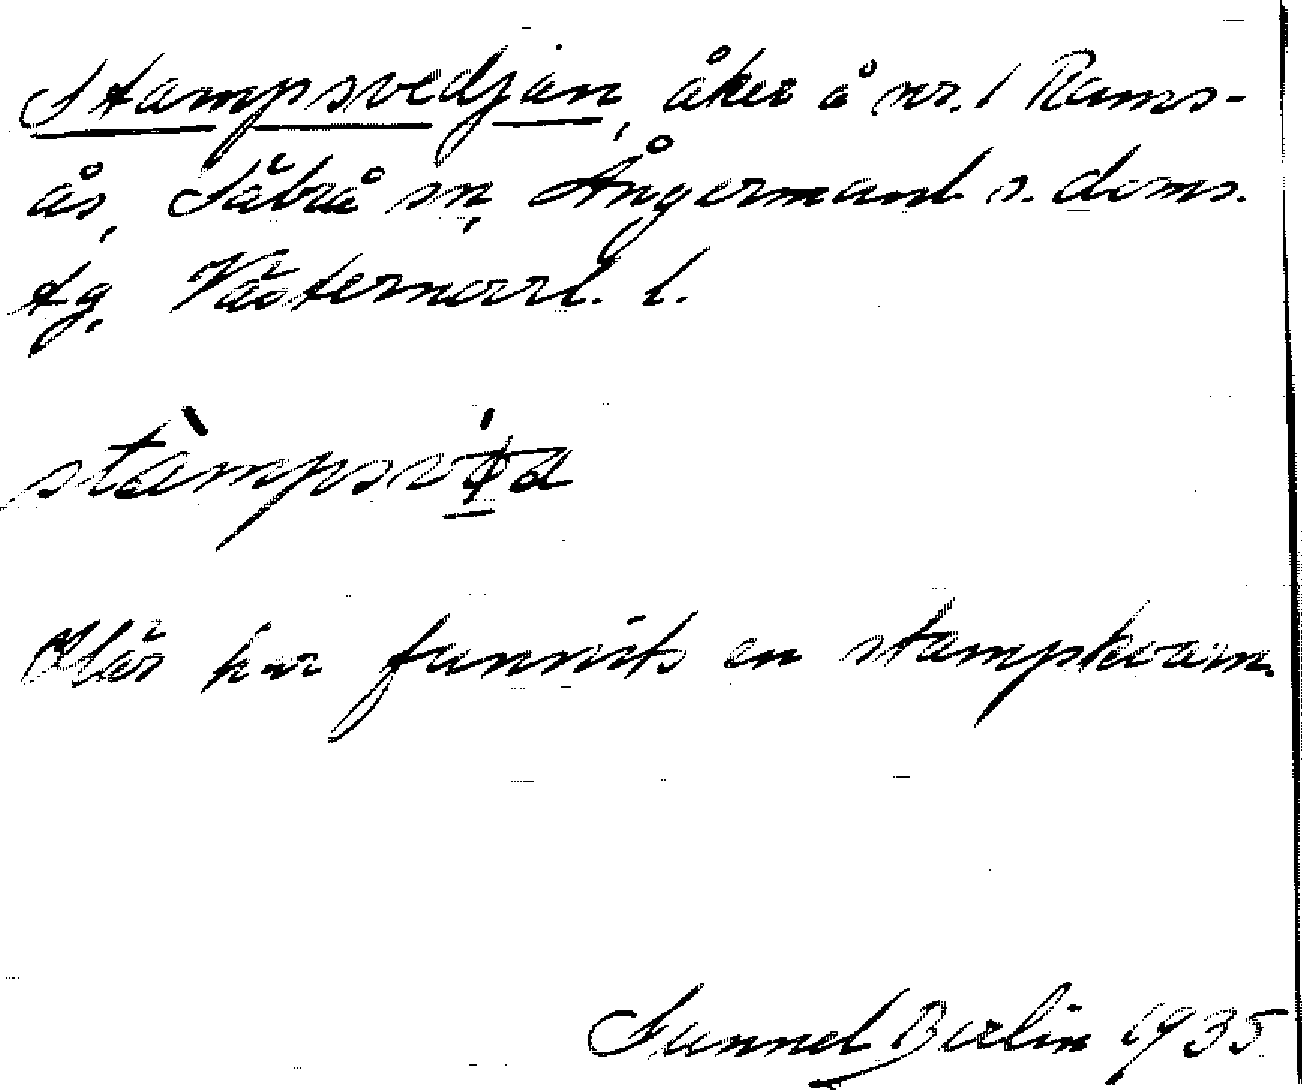 Stampsvedjan, åker å nr. 1 Rams-
ås, Säbrå sn, Ångermanl. s. doms.
tg, Västernorrl. l.
Här har funnits en stampkvarn.
Gunnel Berlin 1935